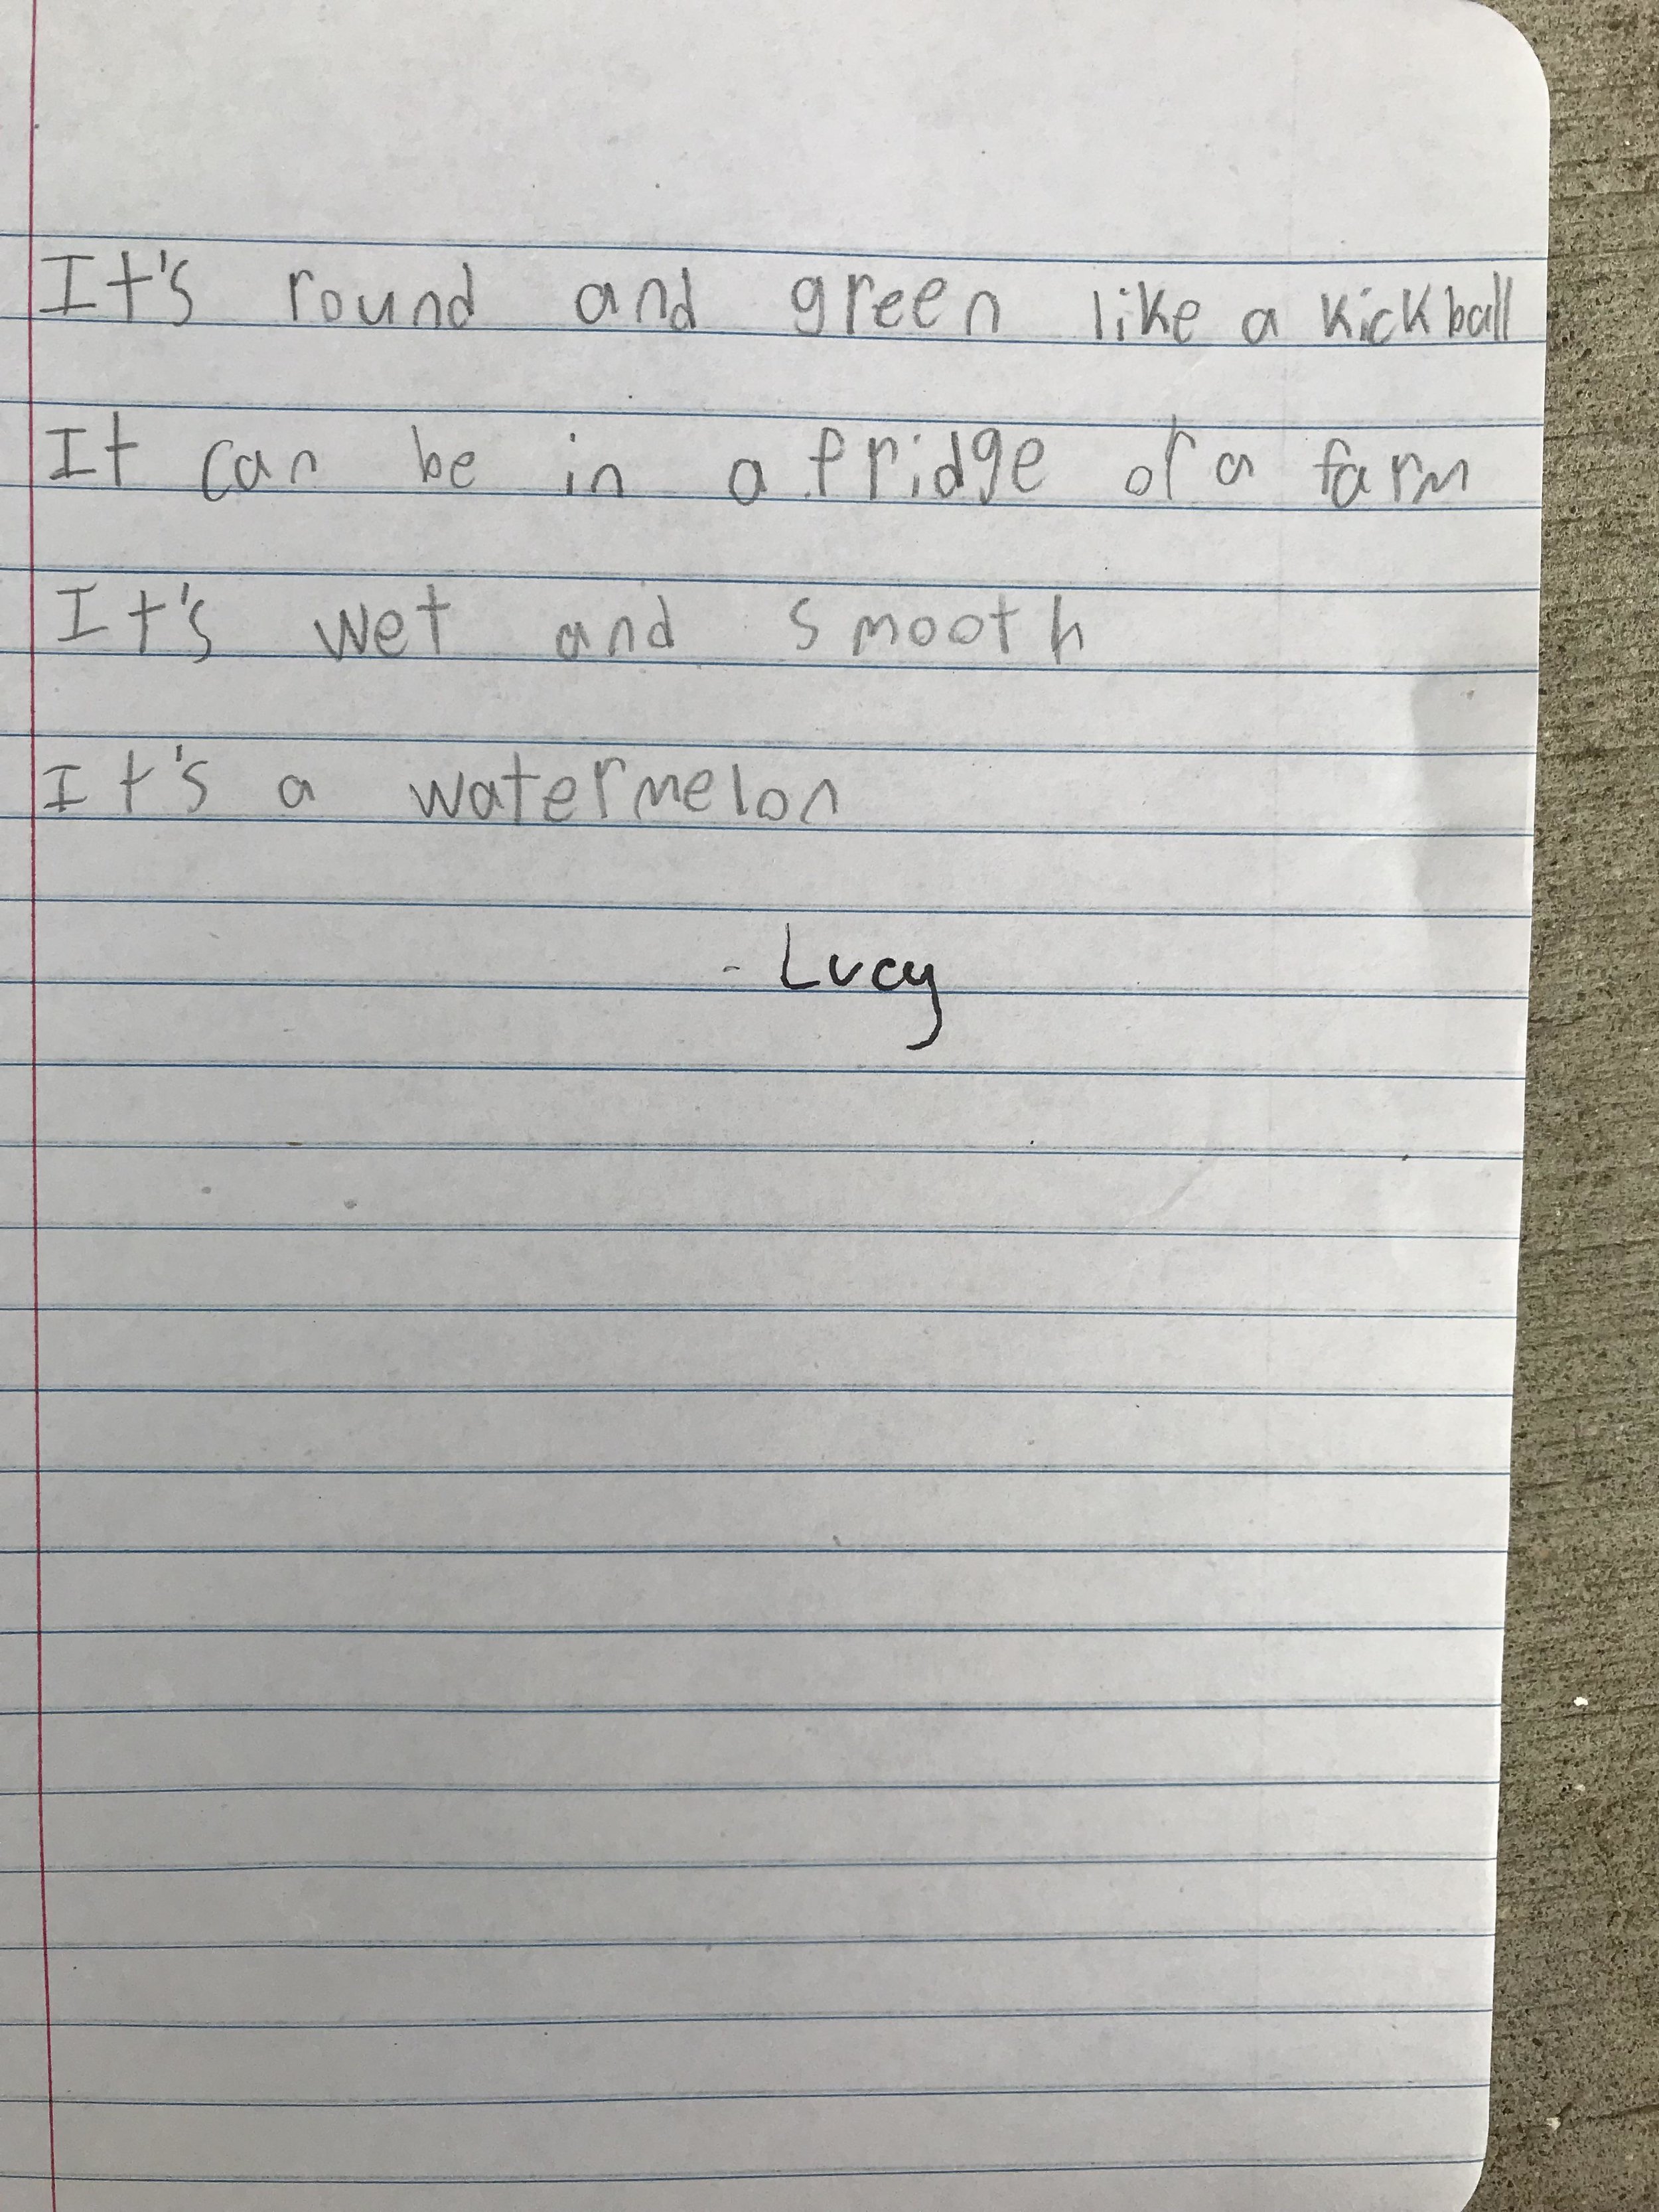 It's round and green like a kickball
It can be in a fridge or a farm
It's wet and smooth
It's a watermelon
- Lucy